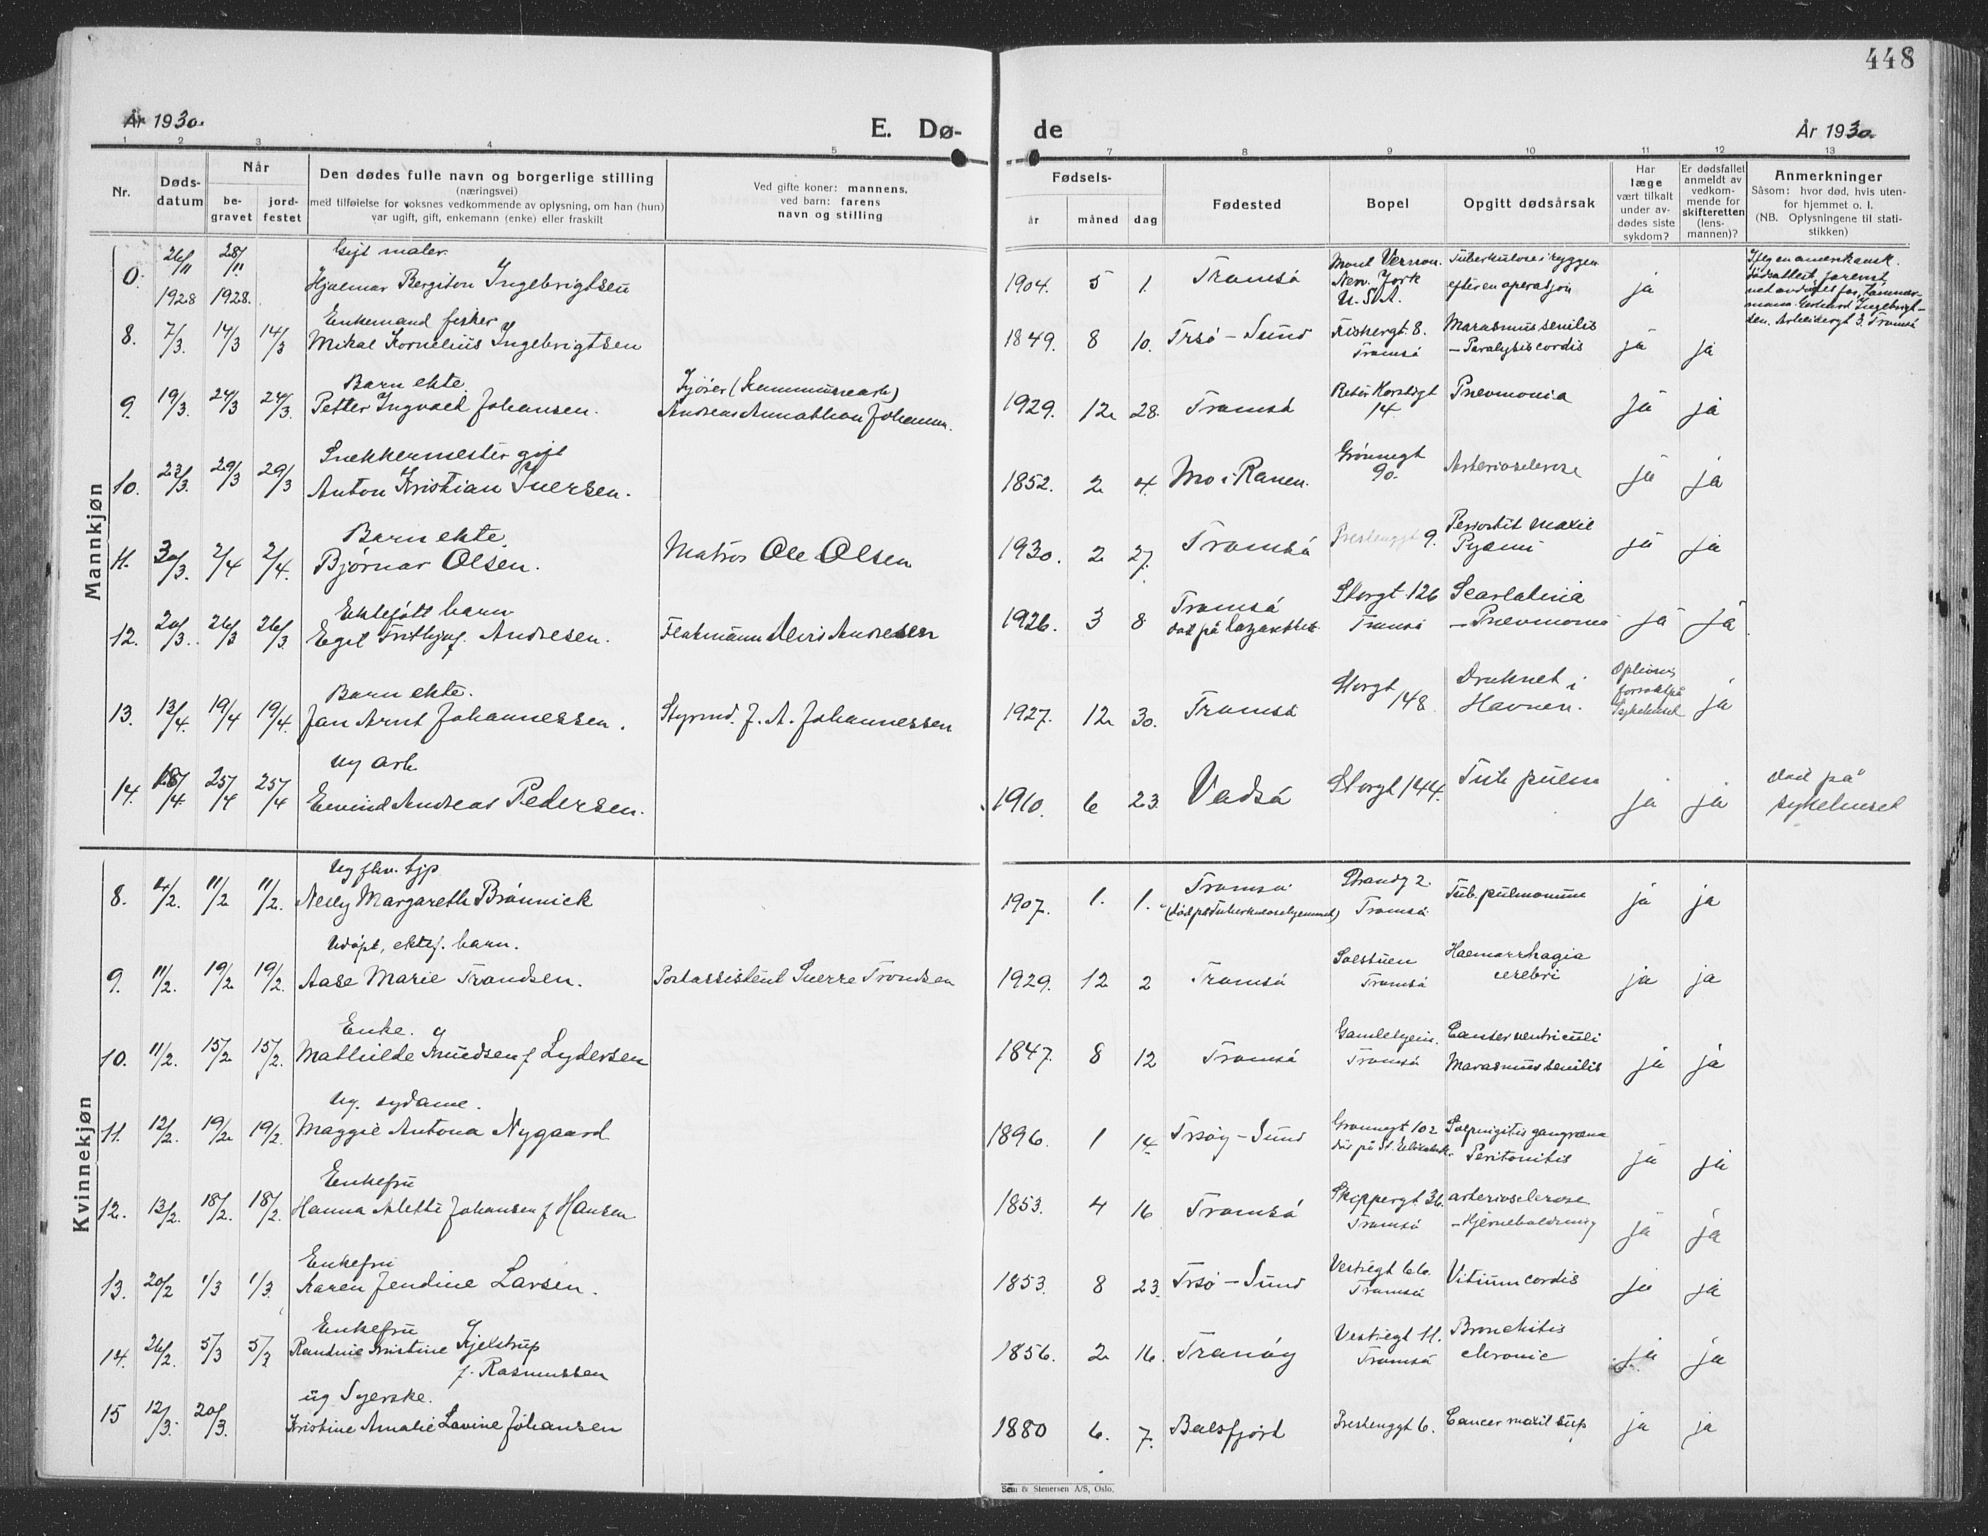 448
År 1930.
E. Dø-
de
År 1930.
1 2 3 4 5 7 8 9 10 11 12 13
Nr.
Døds-
datum
Når
be-
gravet
jord-
festet
Den dødes fulle navn og borgerlige stilling
(næringsvei)
med tilføielse for voksnes vedkommende av oplysning, om han (hun)
var ugift, gift, enkemann (enke) eller fraskilt
Ved gifte koner: mannens,
ved barn: farens
navn og stilling
Fødsels-
år måned dag
Fødested
Bopel
Opgitt dødsårsak
Har
læge
vært tilkalt
under av-
dødes siste
sykdom?
Er dødsfallet
anmeldt av
vedkom-
mende for
skifteretten
(lens-
mannen)?
Anmerkninger
Såsom: hvor død, hvis uten-
for hjemmet o. l.
(NB. Oplysningene til stati-
stikken)
Mannkjøn
Gift maler
0. 26/11 1928 28/11 1928. Hjalmar Bergiton Ingebrigtsen 1904. 5 1. Tromsø Mont Vernon. New. York U.S.A. Tuberkulose i ryggen efter en operasjon ja
Enkemand fisker
8. 7/3. 14/3 14/3 Mikal Kornelius Ingebrigtsen 1849. 8 10. Trsø - Sund 8. Tromsø Marasmus senilis - Paralysis cordis ja ja
Barn ekte.
9. 19/3. 24/3 24/3. Petter Ingvald Johansen. Andreas Johansen. 1929. 12 28. Tromsø 14. Pnevmonia ja ja
Snekkermester gift
10. 23/3. 29/3 29/3 Anton Kristian Iversen. 1852. 2 4. Mo i Ranen. Grønnegt 90. Arteriosclerose ja ja
Barn ekte.
11. 30/3. 2/4 2/4. Bjørnar Olsen. Matros Ole Olsen 1930. 2 27. Tromsø Prestenggt 9. Periostit maxil Pyæmi ja ja
Ektefødt barn
12. 20/3. 26/3 26/3 Egil Frithjof Andresen. Andresen 1926. 3 8 Tromsø død på Lazarettet Storgt 126 Tromsø Scarlatina - Pnevmoni ja ja
Barn ekte.
13. 13/4. 19/4 19/4. Jan Arnt Johannessen. Styrmd. J. A. Johannessen 1927. 12 30. Tromsø Storgt 148 Druknet i Havnen. Oplivnings forsøkt på Sykehuset ja
Ug arb
14. 18/4 25/4 25/4 Eivind Andreas Pedersen. 1910. 6 23. Vadsø Storgt 144. Tub pulm ja ja død på sykehuset
Kvinnekjøn
Ug fhv. tjp
8. 4/2. 11/2 11/2. Nelly Margareth Brønnick 1907. 1. 1. Tromsø (død på Tuberkulosehjemmet) Strandg 2. Tromsø Tub. pulmonum ja ja
Udøpt, ektef. barn.
9. 11/2. 19/2 19/2. Aase Marie Trondsen. Postassistent Sverre Trondsen 1929. 12 2 Tromsø Solstuen Tromsø Haemorrhagia cerebri ja ja
Enke.
10. 11/2. 15/2 15/2. Mathilde Knudsen f Lydersen 1847. 8 12 Tromsø Gamlehjem. Tromsø Cancer ventriculi Marasmus senilis ja ja
Ug. sydame.
11. 12/2. 19/2 19/2. Maggie Antona Nygaard 1896. 1 14 Trsøy - Sund Grønnegt 102 død på St. Elisabeth. Salpingitis gangræna Peritonitis ja ja
Enkefru
12. 13/2. 18/2. 18/2. Hanna Alette Johansen f Hansen 1853. 4 16 Tromsø Skippergt 36. Tromsø arteriosclerose - Hjerneblødning ja ja
Enkefru
13. 20/2 1/3 1/3. Karen Jendine Larsen. 1853. 8 23. Trsø - Sund Vestregt 66. Tromsø Vitium cordis ja ja
Enkefru
14. 26/2. 5/3 5/3 Randine Kristine Kjelstrup f. Rasmussen 1856. 2 16. Tranøy Vestregt 11. Tromsø Bronchitis chronic ja ja
ug Syerske.
15 12/3. 20/3. Kristine Amalie Lovine Johansen 1880 6. 7. Balsfjord Prestenggt 6. Cancer maxil sup ja ja
Sem & Stenersen A/S, Oslo.